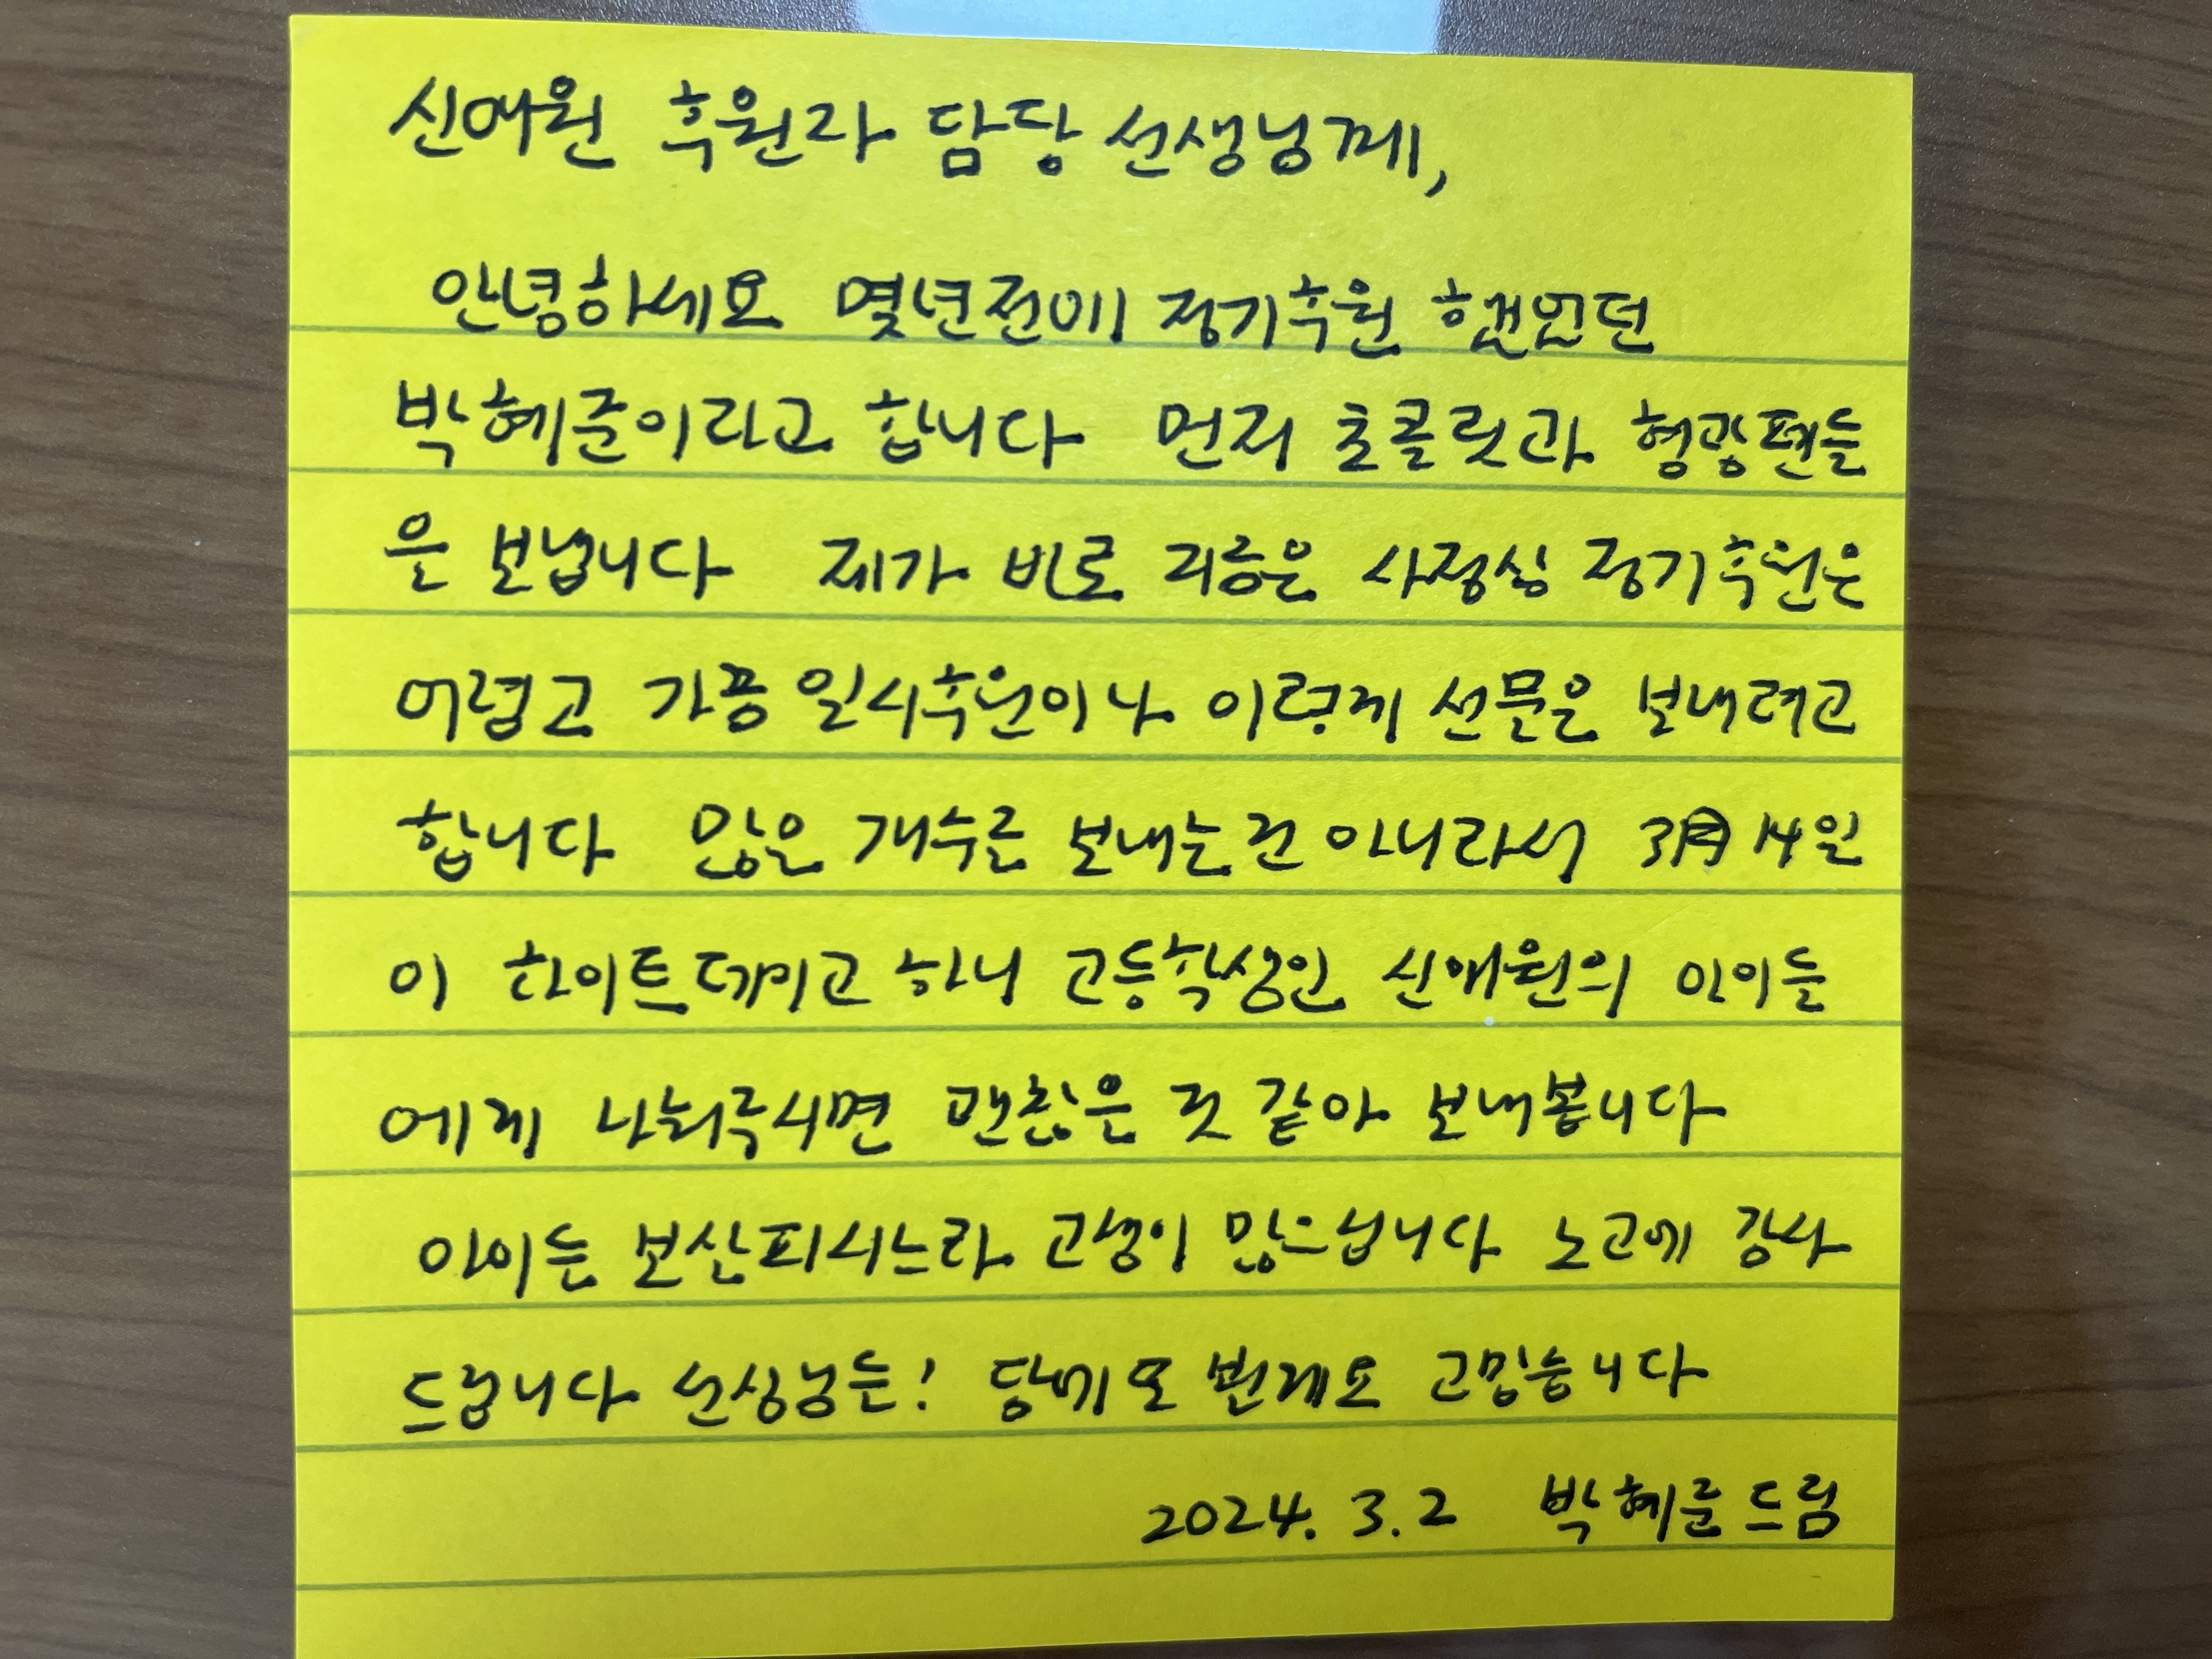 신애원 후원자 담당 선생님께,
안녕하세요 몇년전에 정기후원 했었던
박혜준이라고 합니다 먼저 초콜릿과 형광펜들
을 보냅니다 제가 비로 지금은 사정상 정기후원은
어렵고 가끔 일시후원이나 이렇게 선물을 보내려고
합니다 많은 개수를 보내는건 아니라서 3月 14일
이 화이트데이고 하니 고등학생인 신애원의 아이들
에게 나눠주시면 괜찮을 것 같아 보내봅니다
아이들 보살피시느라 고생이 많으십니다 노고에 감사
드립니다 선생님들! 담에 또 뵐게요 고맙습니다
2024. 3. 2 박혜준 드림